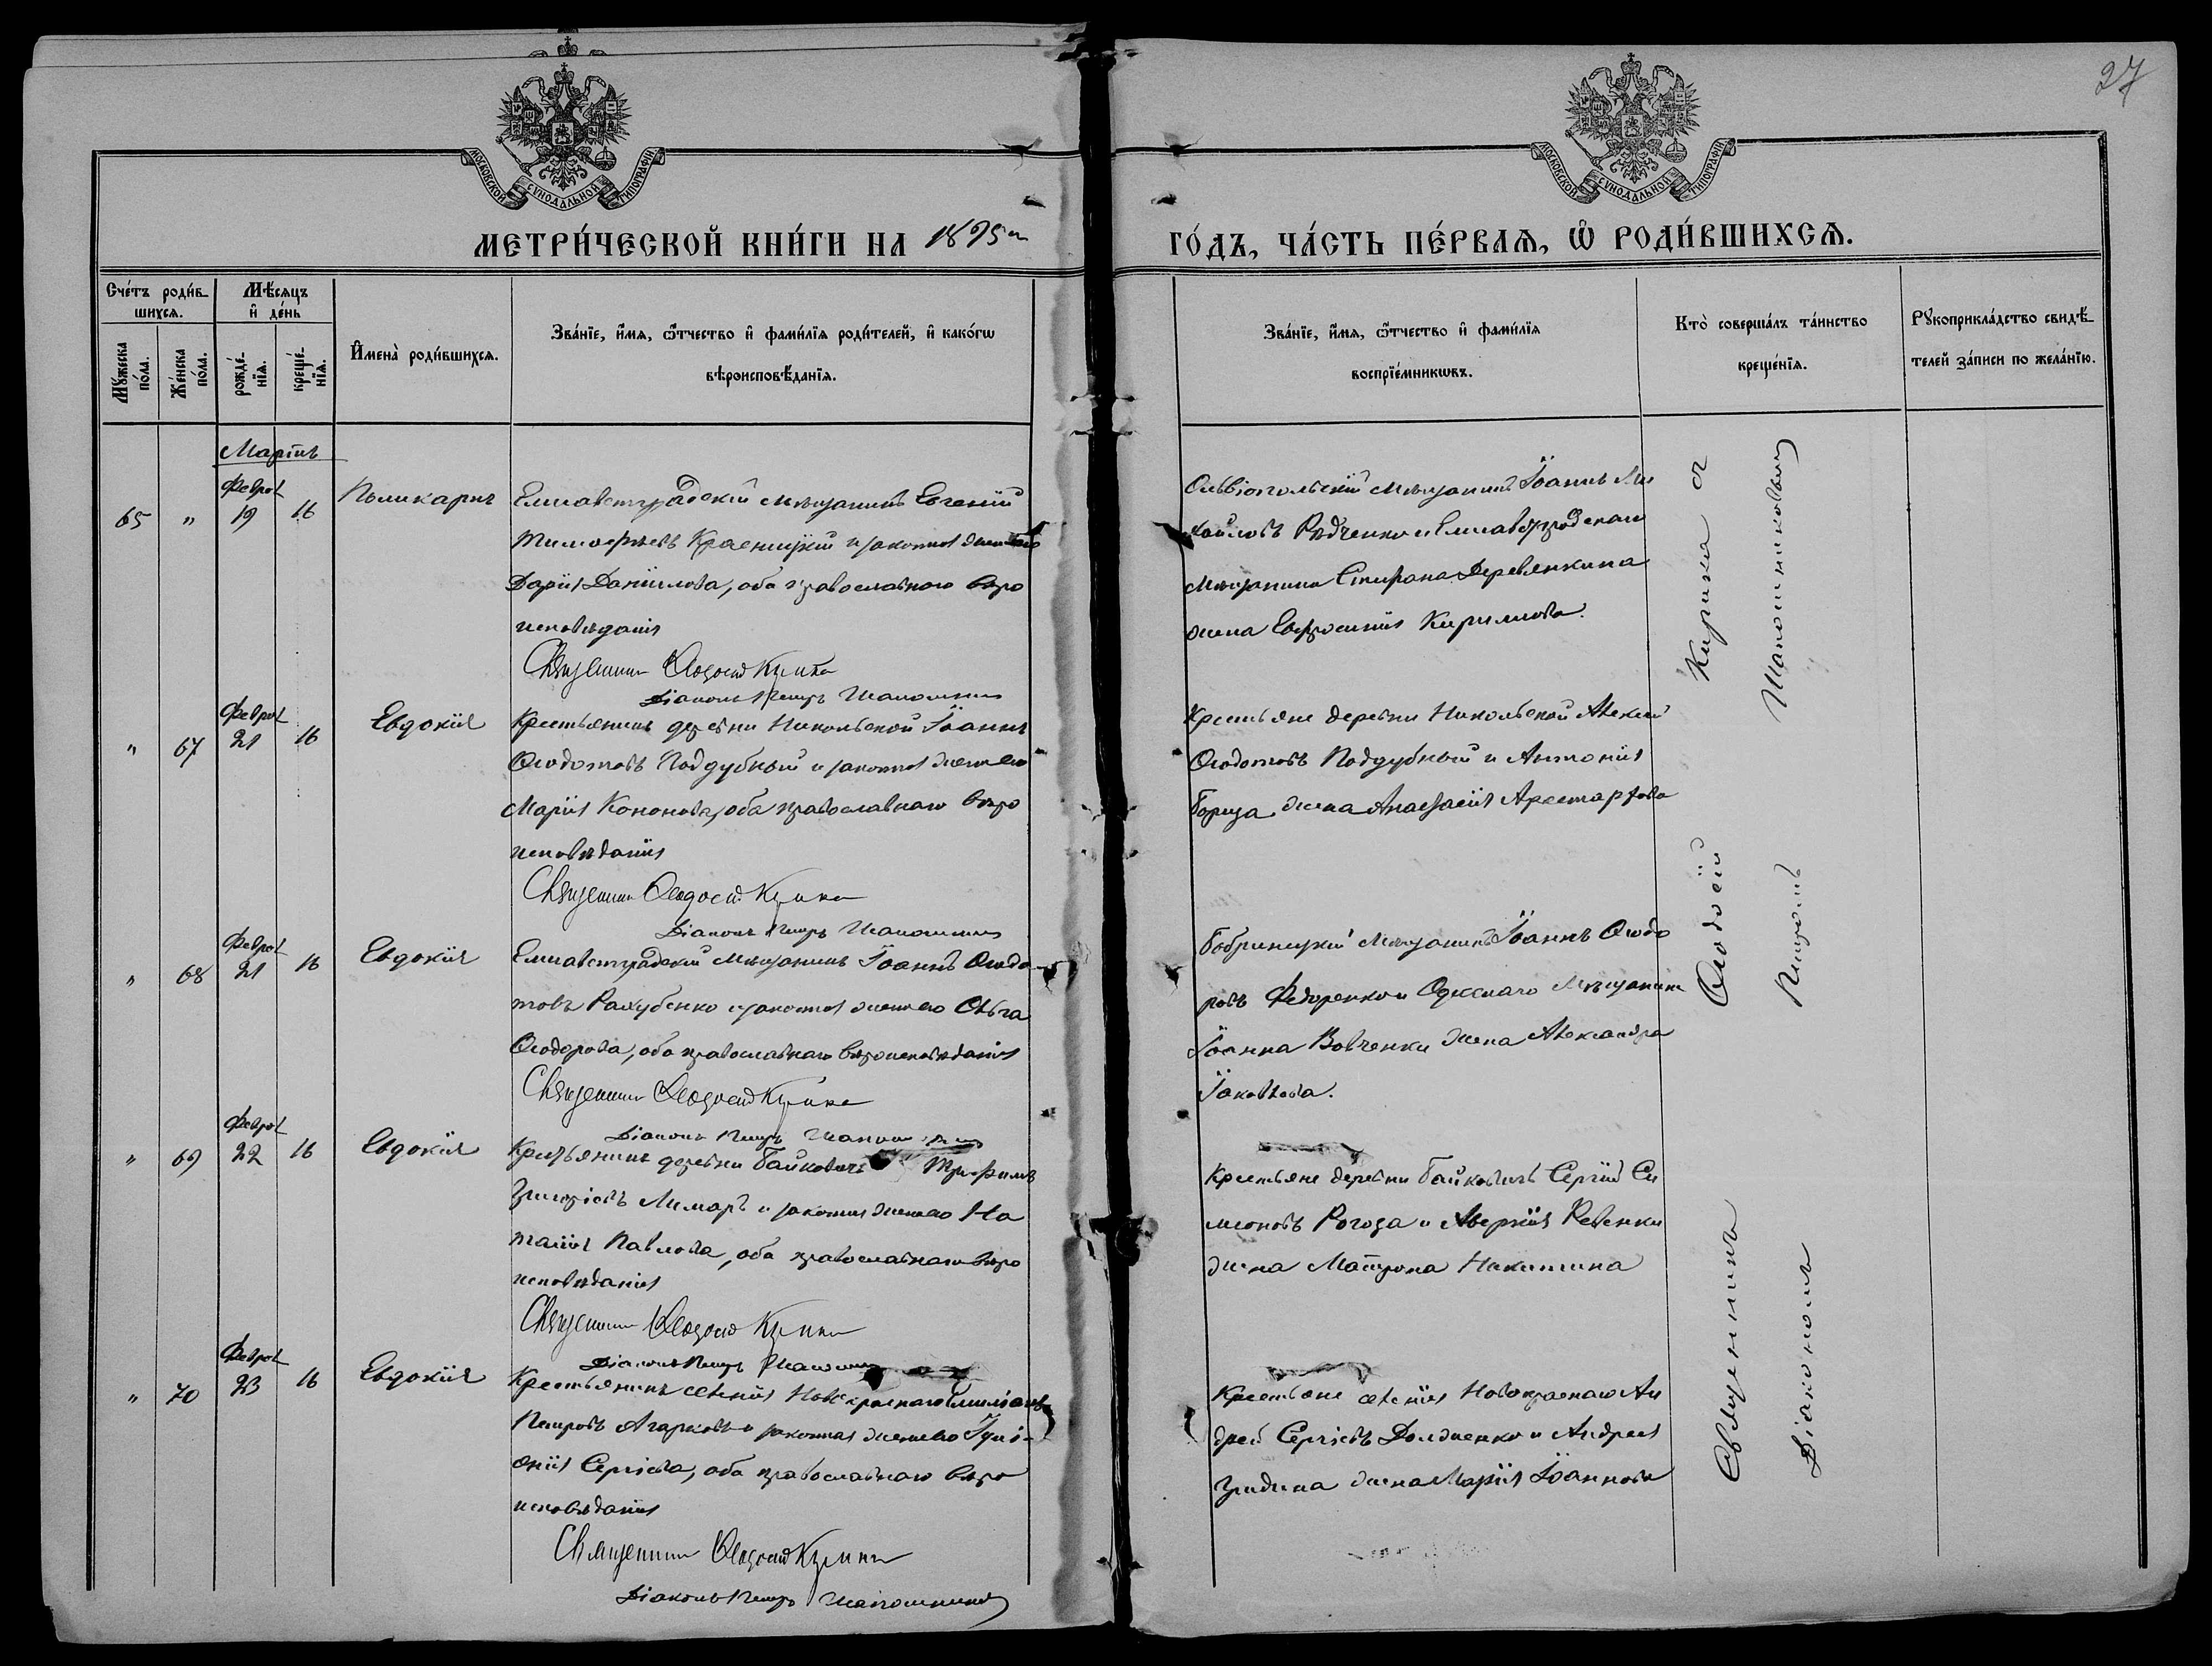 27
МОСКОВСКОЙ СѴНОДАЛЬНОЙ ТИПОГРАФІИ
МОСКОВСКОЙ СѴНОДАЛЬНОЙ ТИПОГРАФІИ
МЕТРИ́ЧЕСКОЙ КНИ́ГИ НА 1895 й
ГО́ДЪ, ЧА́СТЬ ПЕ́РВАЯ, Ѡ РОДИ́ВШИХСЯ.
Сче́тъ роди́в-
шихся.
Мѣ́сяцъ
и де́нь
Му́жеска
по́ла.
Же́нска
по́ла.
рожде́-
нїя.
креще́-
нїя.
Имена̀ роди́вшихся.
Зва́нїе, и́мя, ѻ́тчество и фами́лїя роди́телей, и како́гѡ
вѣроисповѣ́данїя.
Зва́нїе, и́мя, ѻ́тчество и фами́лїя
воспрїе́мникѡвъ.
Кто̀ соверша́лъ та́инство
креще́нїя.
Рукоприкла́дство свидѣ́-
телей за́писи по жела́нїю.
Мартъ
65 " Феврал 19 16
Поликарпъ
Елисаветградскій мѣщанинъ Евгеній
Тимофѣевъ Красницкій и законная жена его
Дарія Даніилова, оба православнаго вѣро
исповѣданія
Священникъ Ѳеодосій
Діаконъ Петръ Шапошниковъ
Ольвіопольскій мѣщанинъ Іоаннъ Ми
хайловъ Рѣдченко и Елисаветградскаго
мѣщанина Стефана Деревянкина
жена Евфросинія Кириллова.
" 67 Феврал 21 16
Евдокія
Крестьянинъ деревни Никольской Іоаннъ
Ѳеодотовъ Поддубный и законная жена его
Марія Кононова, оба православнаго вѣро
исповѣданія
Священникъ Ѳеодосій
Діаконъ Петръ Шапошниковъ
Крестьяне деревни Никольской Алексій
Ѳеодотовъ Поддубный и Антонія
жена Анастасія
" 68 Феврал 21 16
Евдокія
Елисаветградскій мѣщанинъ Іоаннъ Ѳеодо
товъ и законная жена его Ольга
Ѳеодорова, оба православнаго вѣроисповѣданія
Священникъ Ѳеодосій
Діаконъ Петръ
Бобринецкій мѣщанинъ Іоаннъ Ѳеодо
ровъ Федоренко и Одесскаго мѣщанина
Іоанна Вовченки жена Александра
Іаковлева.
" 69 Феврал 22 16
Евдокія
Крестьянинъ деревни Байковичъ Трифилъ
Григоріевъ Лимаръ и законная жена его На
талія Павлова, оба православнаго вѣро
исповѣданія
Священникъ Ѳеодосій
Діаконъ Петръ
Крестьяне деревни Байковичъ Сергій Си
меоновъ Рогоза и Аверкія Ревенки
жена Матрона Никитина
" 70 Феврал 23 16
Евдокія
Крестьянинъ селенія Новокраснаго Емиліанъ
Петровъ Агарковъ и законная жена его Іулі-
анія Сергіева, оба православнаго вѣро
исповѣданія
Священникъ Ѳеодосій
Діаконъ Петръ Шапошниковъ
Крестьяне селенія Новокраснаго Ан
дрей Сергіевъ Долженко и Андрея
жена Марія Іоаннова
Священникъ Ѳеодосій Кирика съ
Діакономъ Петромъ Шапошниковымъ